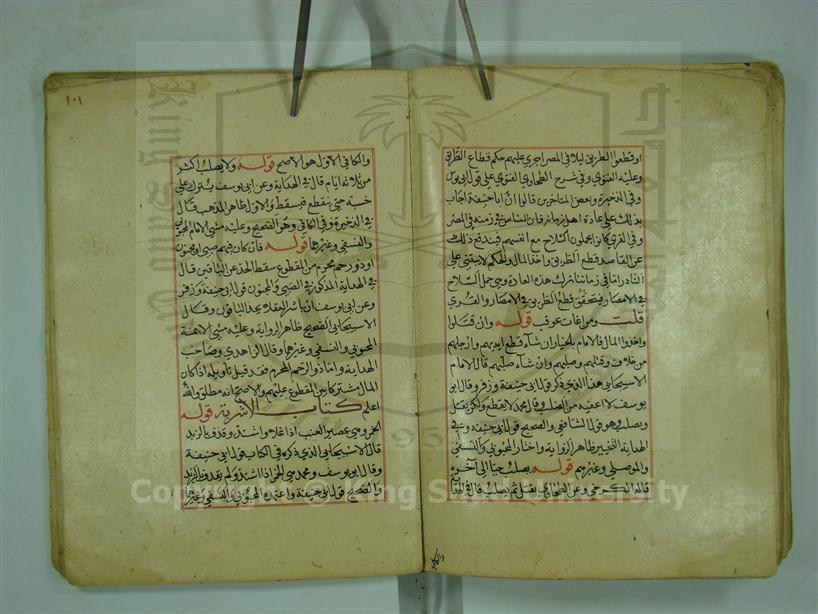 او قطعوا الطريق ليلا في المصر اجري عليهم حكم قطاع الطريق
وعليه الفتوى وفي شرح الطحاوي الفتوى على قول ابي يوسف
وفي الذخيرة وبعض المتاخرين قالوا ان ابا حنيفة اجاب
بذلك على عادة اهل زمانه فان الناس في زمنه في المصر
وفي القرى كانوا يحملون السلاح مع انفسهم فيندفع ذلك
عن القاصد قطع الطريق واخذ المال والحكم لا يبتنى على
النادر اما في زماننا ترك هذه العادة وهي حمل السلاح
في الامصار فيتحقق قطع الطريق في الامصار والقرى
قلت ومن اغات عوقب قوله وان قتلوا
واخذوا المال فالامام بالخيار ان شاء قطع ايديهم وارجلهم
من خلاف وقتلهم وصلبهم وان شاء صلبهم قال الامام
الاسبيجابي هذا الذي ذكر قول ابي حنيفة وزفر وقال ابو
يوسف لا اعفيه من الصلب وقال محمد لا يقطع ولكن يقتل
ويصلب وهو قول الشافعي والصحيح قول ابي حنيفة وفي
الهداية التخيير ظاهر الرواية واختار المحبوبي والنسفي
والموصلي وغيرهم قوله يصلب حيا الى آخره
قاله الكرخي وعن الطحاوي يقتل ثم يصلب قال في الهداية
والكافي
١٠١
والكافي الاول هو الاصح قوله ولا يصلب اكثر
من ثلاثة ايام قال في الهداية وعن ابي يوسف يترك على
خشبة حتى ينقطع فيسقط والاول ظاهر المذهب قال
في الذخيرة وفي الكافي وهو الصحيح وعليه مشى الامام المحبوبي
والنسفي وغيرهما قوله فان كان فيهم صبي او مجنون
او ذو رحم محرم من المقطوع سقط الحد عن الباقين قال
في الهداية المذكور في الصبي والمجنون قول ابي حنيفة وزفر
وعن ابي يوسف ان باشر العقلا يحد الباقون وقال
الاسبيجابي الصحيح ظاهر الرواية وعليه مشى الائمة
المحبوبي والنسفي وغيرهما وقال الزاهدي وصاحب
الهداية واما ذو الرحم المحرم فقد قيل تاويله اذا كان
المال مشتركا بين المقطوع عليهم والاصح انه مطلق والله
اعلم كتاب الاشربة قوله
الخمر وهي عصير العنب اذا غلا واشتد وقذف بالزبد
قال الاسبيجابي الذي ذكره في الكتاب قول ابي حنيفة
وقال ابو يوسف ومحمد هي الخمر اذا اشتد ولم يقذف بالزبد
والصحيح قول ابي حنيفة واعتمده المحبوبي والنسفي وغيرهما
Copyright © King Saud University